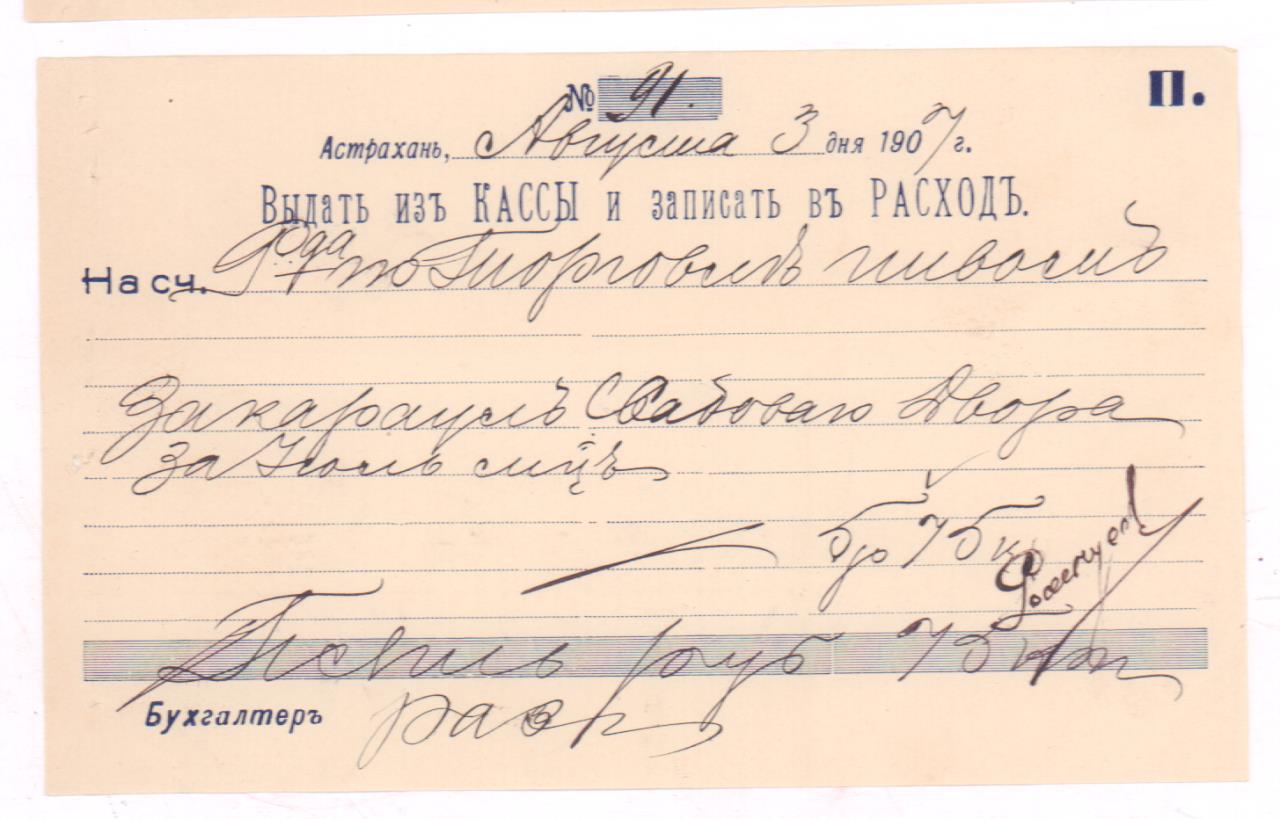 № 91.
П.
Астрахань, Августа 3 дня 1907 г.
Выдать изъ КАССЫ и записать въ РАСХОДЪ.
На сч. по Торговлѣ пивомъ
За караулъ Двора
за Іюль мцъ
5 р 75 к
Пять руб 75 коп
Бухгалтеръ